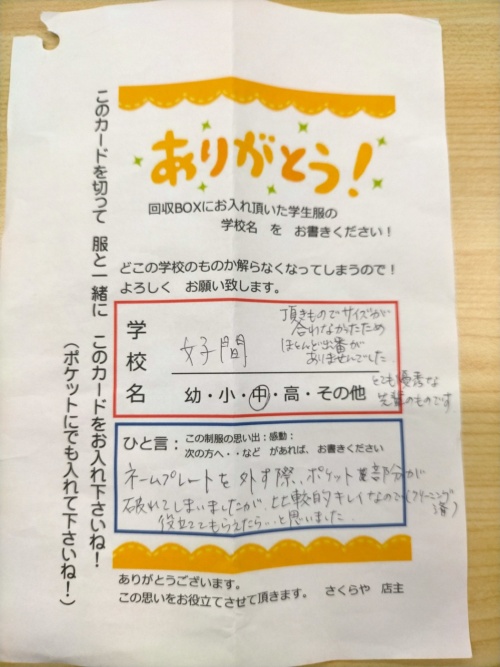 ありがとう!
回収BOXにお入れ頂いた学生服の
学校名 を お書きください!
どこの学校のものか解らなくなってしまうので!
よろしく お願い致します。
学校名
女子間
頂きものでサイズが
合わなかったため
ほとんど出番が
ありませんでした
幼・小・中・高・その他
とても優秀な
先輩のものです
ひと言:この制服の思い出:感動:
次の方へ・・など があれば、お書きください
ネームプレートを外す際、ポケット部分が
破れてしまいましたが、比較的キレイなので(クリーニング
済)
役立ててもらえたら..と思いました
ありがとうございます。
この思いをお役立てさせて頂きます。 さくらや 店主
このカードを切って 服と一緒に このカードをお入れ下さいね!
(ポケットにでも入れて下さいね!)